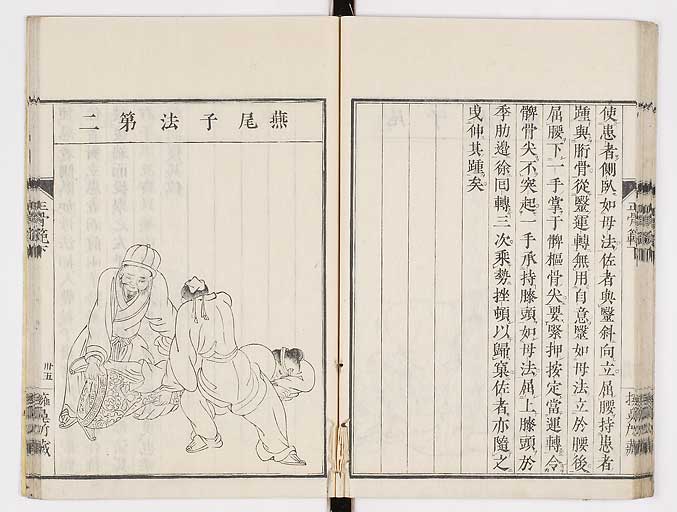 使患者側臥如母法佐者與毉斜向立屈腰持患者
踵與胻骨從毉運轉無用自意毉如母法立於腰後
屈腰下一手掌于髀樞骨尖要緊押按定當運轉令
髀骨尖不突起一手承持膝頭如母法屈上膝頭於
季肋邊徐回轉三次乘勢挫頓以歸窠佐者亦隨之
曳伸其踵矣
正骨範下
燕尾子法第二
正骨範下
卅五